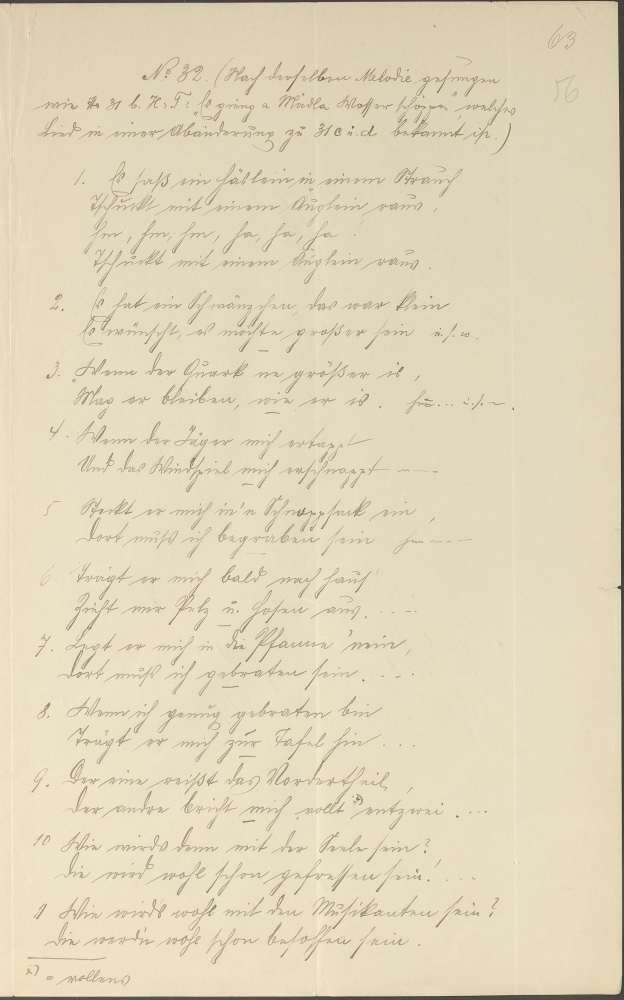 63
56
No 32. (Nach derselben Melodie gesungen
wie No 31 b. H. F: "Es ging a Mädla Wasser schöppen", welches
Lied in einer Abänderung zu 31 c u. d bekannt ist.)
1. Es saß ein Häslein in einem Strauch
Tschuckt mit einem Äuglein raus,
hm, hm, hm, ha, ha, ha.
Tschuckt mit einem Äuglein raus.
2. Es hat ein Schwänzchen, das war klein
Es wünscht, es möchte großer sein u. s. w.
3. "Wenn der Quark ne größer is,
Mag er bleiben, wie er is. hm... u. s. w.
4. Wenn der Jäger mich ertappt
Und das Windspiel mich erschnappt ———
5 Steckt er mich in'n Schnappsack ein,
Dort muß ich begraben sein hm ———
6 Trägt er mich bald nach Haus'
Zieht mir Pelz u. Hosen aus. ...
7. Legt er mich in die Pfanne 'nein,
Dort muß ich gebraten sein. ...
8. Wenn ich genug gebraten bin
Trägt er mich zur Tafel hin ...
9. Der eine reißt das Vordertheil,
Der andre bricht mich vollt x) entzwei. ...
10 Wie wirds denn mit der Seele sein?
Die wird wohl schon gefressen sein! ...
11 Wie wirds wohl mit den Musikanten sein?
Die werd'n wohl schon besoffen sein.
x) = vollens